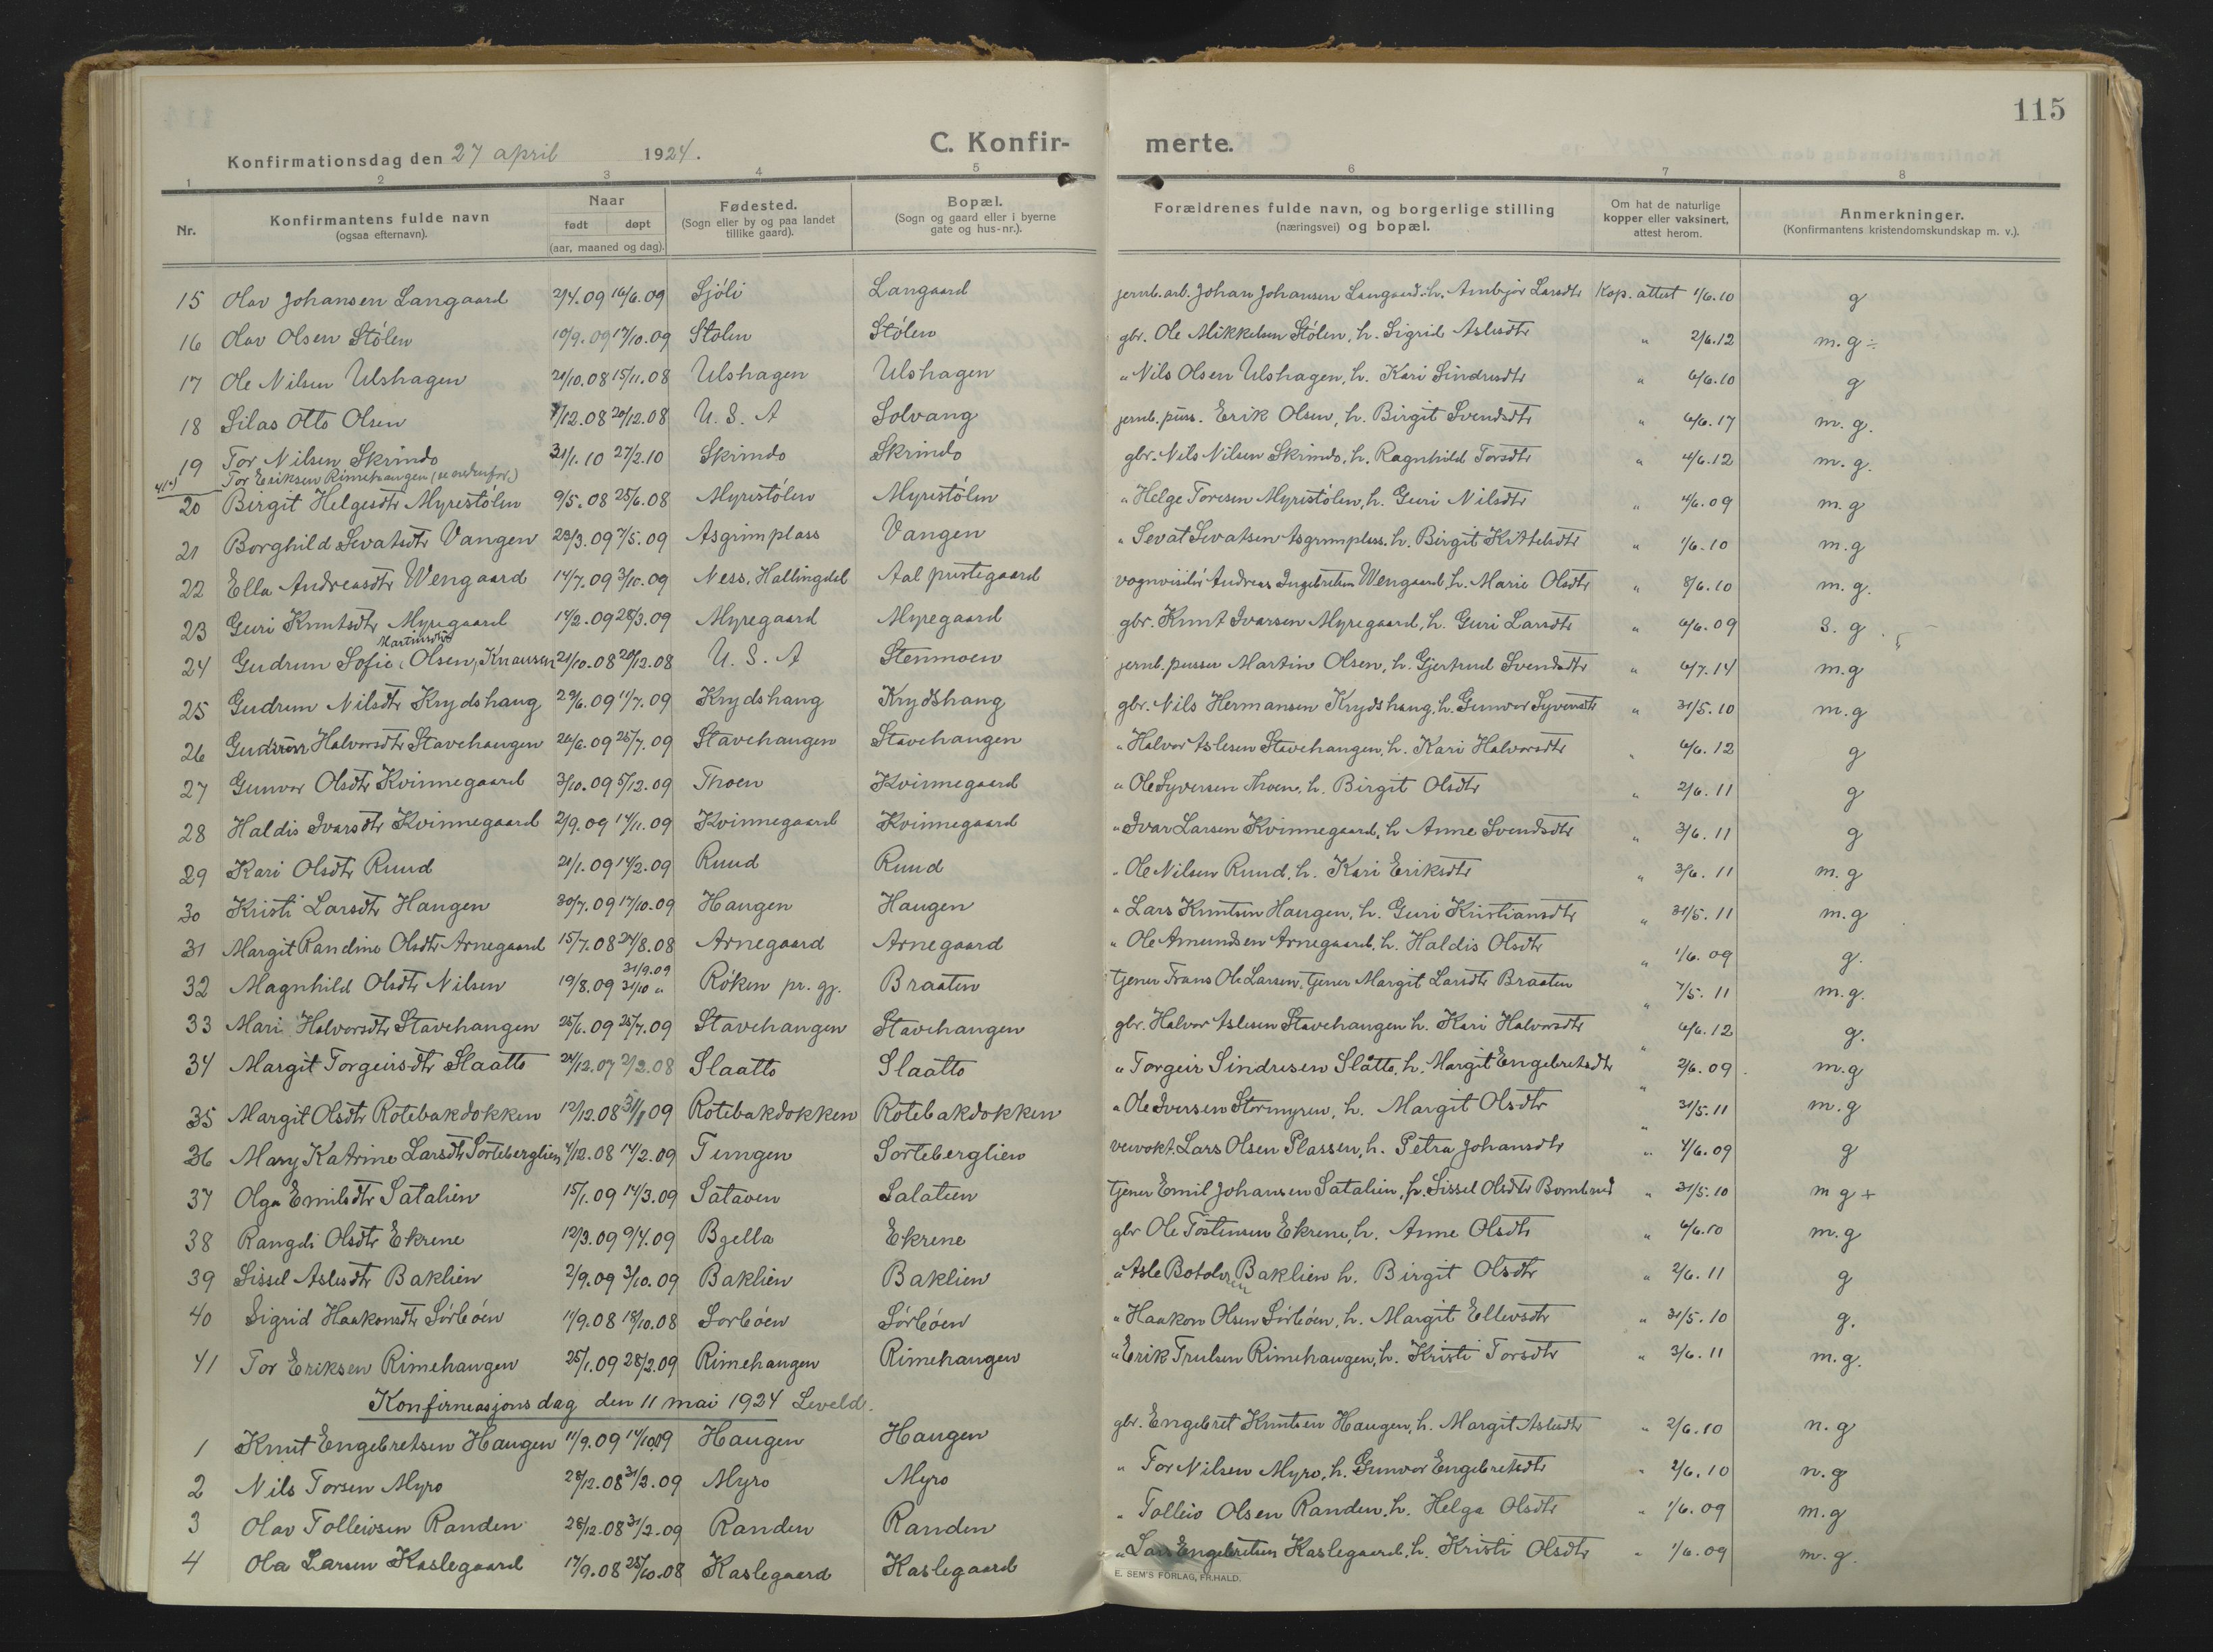 115
Konfirmationsdag den 27 april 1924.
C. Konfir- merte.
1 2 3 4 5 6 7 8
Nr. Konfirmantens fulde navn (ogsaa efternavn). Naar født døpt (aar, maaned og dag). Fødested. (Sogn eller by og paa landet tillike gaard). Bopæl. (Sogn og gaard eller i byerne gate og hus-nr.). Forældrenes fulde navn, og borgerlige stilling (næringsvei) og bopæl. Om hat de naturlige kopper eller vaksinert, attest herom. Anmerkninger. (Konfirmantens kristendomskundskap m. v.).
15 Olav Johansen Langaard 2/4.09 16/6.09 Sjöli Langaard jernb.arb. Johan Johansen Langaard. h. Ambjör Larsdtr Kop. attest 1/6.10 g
16 Olav Olsen Stölen 10/9.09 17/10.09 Stölen Stölen gbr. Ole Mikkelsen Stölen, h. Sigrid Aslesdtr " 2/6.12 m.g÷
17 Ole Nilsen Ulshagen 21/10.08 15/11.08 Ulshagen Ulshagen " Nils Olsen Ulshagen, h. Kari Sindresdtr " 6/6.10 g
18 Silas Otto Olsen /12.08 20/12.08 U. S. A Solvang jernb.puss. Erik Olsen, h. Birgit Svendsdtr " 6/6.17 m.g.
19 Tor Nilsen Skrindo 31/1.10 27/2.10 Skrindo Skrindo gbr. Nils Nilsen Skrindo, h. Ragnhild Torsdtr " 4/6.12 m.g.
41) Tor Eriksen Rimehaugen (se nedenfor.)
20 Birgit Helgesdtr Myrestölen 9/5.08 28/6.08 Myrestölen Myrestölen " Helge Toresen Myrestölen, h. Guri Nilsdtr " 4/6.09 m.g
21 Borghild Sevatsdtr Vangen 23/3.09 7/5.09 Asgrimplass Vangen " Sevat Sevatsen Asgrimplass. h. Birgit Kittelsdtr " 1/6.10 m.g
22 Ella Andreasdtr Wengaard 14/7.09 3/10.09 Ness, Hallingdal Aal prestegaard vognvisitör Andreas Ingebretsen Wengaard, h. Marie Olsdtr " 8/6.10 m.g.
23 Guri Knutsdtr Myregaard 14/2.09 28/3.09 Myregaard Myregaard gbr. Knut Ivarsen Myregaard, h. Guri Larsdtr " 6/6.09 S. g.
24 Gudrun Sofie Martinsdtr Olsen, Knausen 21/10.08 20/12.08 U. S. A Stenmoen jernb.pusser Martin Olsen, h. Gjertrud Svendsdtr " 6/7.14 m.g
25 Gudrun Nilsdtr Krydshaug 29/6.09 11/7.09 Krydshaug Krydshaug gbr. Nils Hermansen Krydshaug, h. Gunvor Syversdtr " 31/5.10 m.g
26 Gudrun Halvorsdtr Stavehaugen 26/6.09 25/7.09 Stavehaugen Stavehaugen " Halvor Aslesen Stavehaugen, h. Kari Halvorsdtr " 6/6.12 g
27 Gunvor Olsdtr Kvinnegaard 3/10.09 5/12.09 Thoen Kvinnegaard " Ole Syversen Thoen, h. Birgit Olsdtr " 2/6.11 g
28 Haldis Ivarsdtr Kvinnegaard 2/9.09 14/11.09 Kvinnegaard Kvinnegaard " Ivar Larsen Kvinnegaard, h Anne Svendsdtr " 3/6.11 g
29 Kari Olsdtr Ruud 21/1.09 14/2.09 Ruud Ruud " Ole Nilsen Ruud, h. Kari Eriksdtr " 3/6.11 m.g
30 Kristi Larsdtr Haugen 30/7.09 17/10.09 Haugen Haugen " Lars Knutsen Haugen, h. Guri Kristiansdtr " 31/5.11 m.g
31 Margit Randine Olsdtr Arnegaard 15/7.08 24/8.08 Arnegaard Arnegaard " Ole Amundsen Arnegaard, h. Haldis Olsdtr " 1/6.09 g.
32 Magnhild Olsdtr Nilsen 19/8.09 31/9.09 31/10 " Röken pr. gj. Braaten tjener Frans Ole Larsen, tjener Margit Larsdtr Braaten " 7/5.11 m.g.
33 Mari Halvorsdtr Stavehaugen 25/6.09 25/7.09 Stavehaugen Stavehaugen gbr. Halvor Aslesen Stavehaugen h. Kari Halvorsdtr " 6/6.12 g.
34 Margit Torgeirsdtr Slaatto 24/12.07 2/2.08 Slaatto Slaatto " Torgeir Sindresen Slåtto, h. Margit Engebretsdtr " 2/6.09 m.g
35 Margit Olsdtr Rotebakdokken 12/12.08 31/1 09 Rotebakdokken Rotebakdokken " Ole Iversen Stormyren, h. Margit Olsdtr " 31/5.11 m.g
36 Mary Katrine Larsdtr Sorteberglien 4/12.08 14/2.09 Tungen Sorteberglien veivokt. Lars Olsen Plassen, h. Petra Johansdtr " 4/6.09 g
37 Olga Emilsdtr Satalien 15/1.09 14/3.09 Sataoen Salatien tjener Emil Johansen Satalien, h. Sissel Olsdtr " 31/5.10 m g +
38 Rangdi Olsdtr Ekrene 12/3.09 9/4.09 Bgella Ekrene gbr Ole Tostensen Ekrene, h. Anne Olsdtr " 6/6.10 m.g
39 Sissel Aslesdtr Baklien 2/9.09 3/10.09 Baklien Baklien " Asle Botolvsen Baklien h. Birgit Olsdtr " 2/6.11 g
40 Sigrid Haakonsdtr Sörböen 11/9.08 18/10.08 Sorböen Sörböen " Haakon Olsen Sörböen, h. Margit Ellevsdtr " 31/5.10 g.
41 Tor Eriksen Rimehaugen 25/1.09 28/2.09 Rimehaugen Rimehaugen " Erik Trulsen Rimehaugen, h. Kristi Torsdtr " 3/6.11 m.g.
Konfirmasjonsdag den 11 mai 1924 Leveld.
1 Knut Engebretsen Haugen 11/9.09 14/10.09 Haugen Haugen gbr. Engebret Knutsen Haugen, h. Margit Aslesdtr " 2/6.10 n.g
2 Nils Torsen Myro 28/12.08 31/3.09 Myro Myro " Tor Nilsen Myro, h. Gunvor Engebretsdtr " 2/6.10 n.g
3 Olav Tolleivsen Randen 28/12.08 31/2.09 Randen Randen " Tolleiv Olsen Randen, h. Helga Olsdtr " 1/6.09 m.g
4 Ola Larsen Kaslegaard 17/9.08 25/10.08 Kaslegaard Kaslegaard " Lars Engebretsen Kaslegaard, h. Kristi Olsdtr " 1/6.09 m.g.
E. SEM'S FORLAG, FR.HALD.